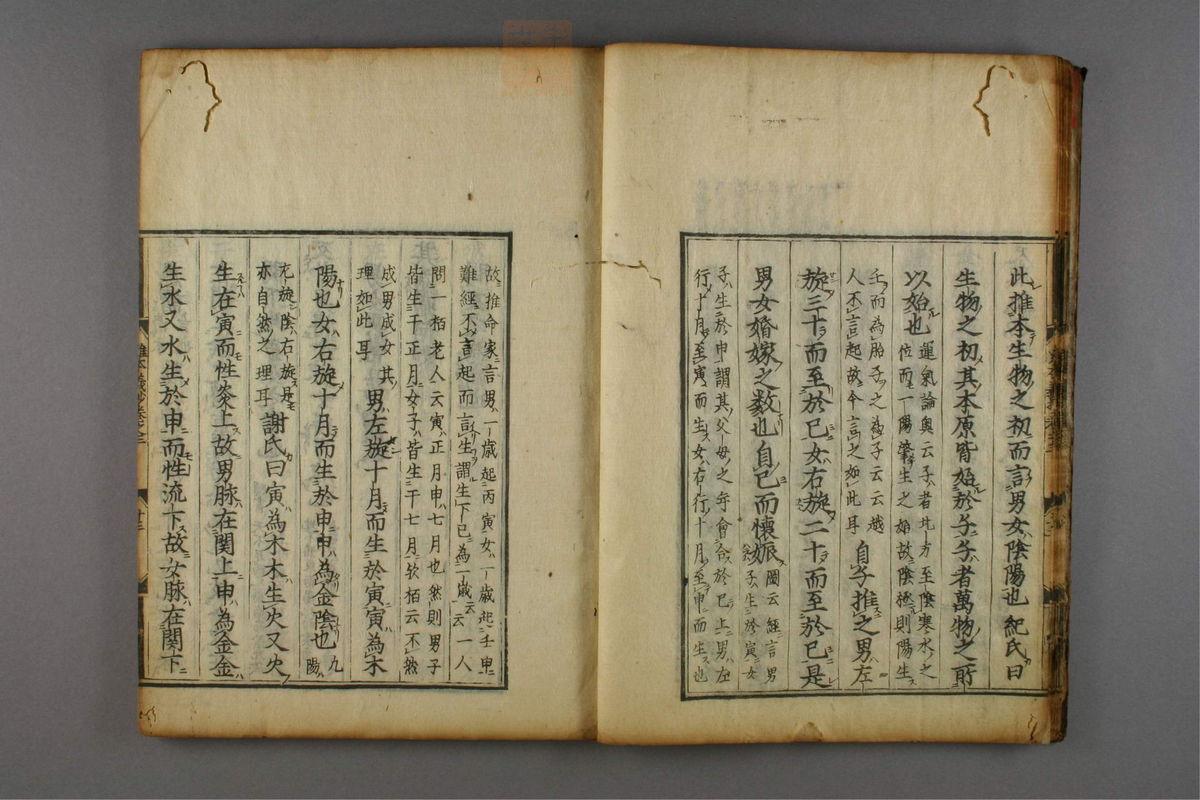 此推本生物之初而言男女陰陽也紀氏曰
生物之初其本原皆始於子子者萬物之所
以始也運氣論奥云子者北方至陰寒水之
位而一陽肇生之始故陰極則陽生
壬而為胎子之為子云云越
人不言起故今言之如此耳自子推之男左
旋三十而至於巳女右旋二十而至於巳是
男女婚嫁之数也自巳而懐娠圖云経言男
子生於寅女
子生於申謂其父母之年會合於巳上男左
行十月至寅而生女右行十月至申而生也
故推命家言男一歳起丙寅女一歳起壬申
難經不言起而言生謂生下已為一歳云云一人
問一栢老人云寅正月申七月也然則男子
皆生于正月女子皆生于七月欤栢云不然
成男成女其
理如此耳男左旋十月而生於寅寅為木
陽也女右旋十月而生於申申為金陰也九
陽
左旋陰右旋是
亦自然之理耳謝氏曰寅為木木生火又火
生在寅而性炎上故男脉在関上申為金金
生水又水生於申而性流下故女脉在関下